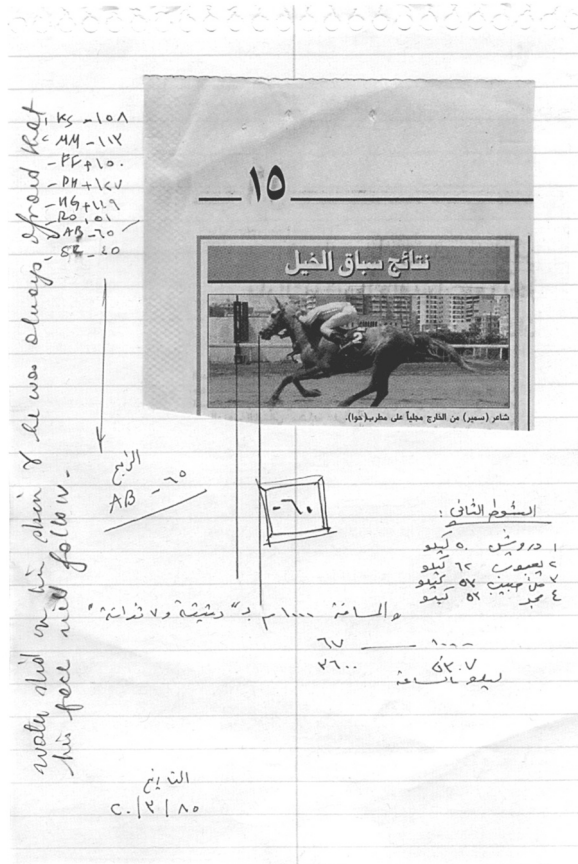 KS -١٥٨
MM -١١٢
FF +١٥٠
PH +١٤٧
HG +١٤٩
AB -٦٠
-٤٠
water slid on his skin & he was always afraid that
his face will follow.
١٥
نتائج سباق الخيل
2
شاعر (سمير) من الخارج مجلياً على مطرب(حوا).
الرابح
AB -٦٠
-٦٠
الشوط الثاني :
١ درويش ٥٠ كيلو
٢ يعسوب ٦٢ كيلو
٣ حبيب ٥٣ كيلو
٤ مجد ٥٢ كيلو
المسافة ١٠٠٠ م بـ "دقيقة و٧ ثوانة"
١٠٠٠ ——— ٦٧
٥٣.٧ ٣٦٠٠
كيلو بالساعة
التاريخ
٢٠/٣/٨٥